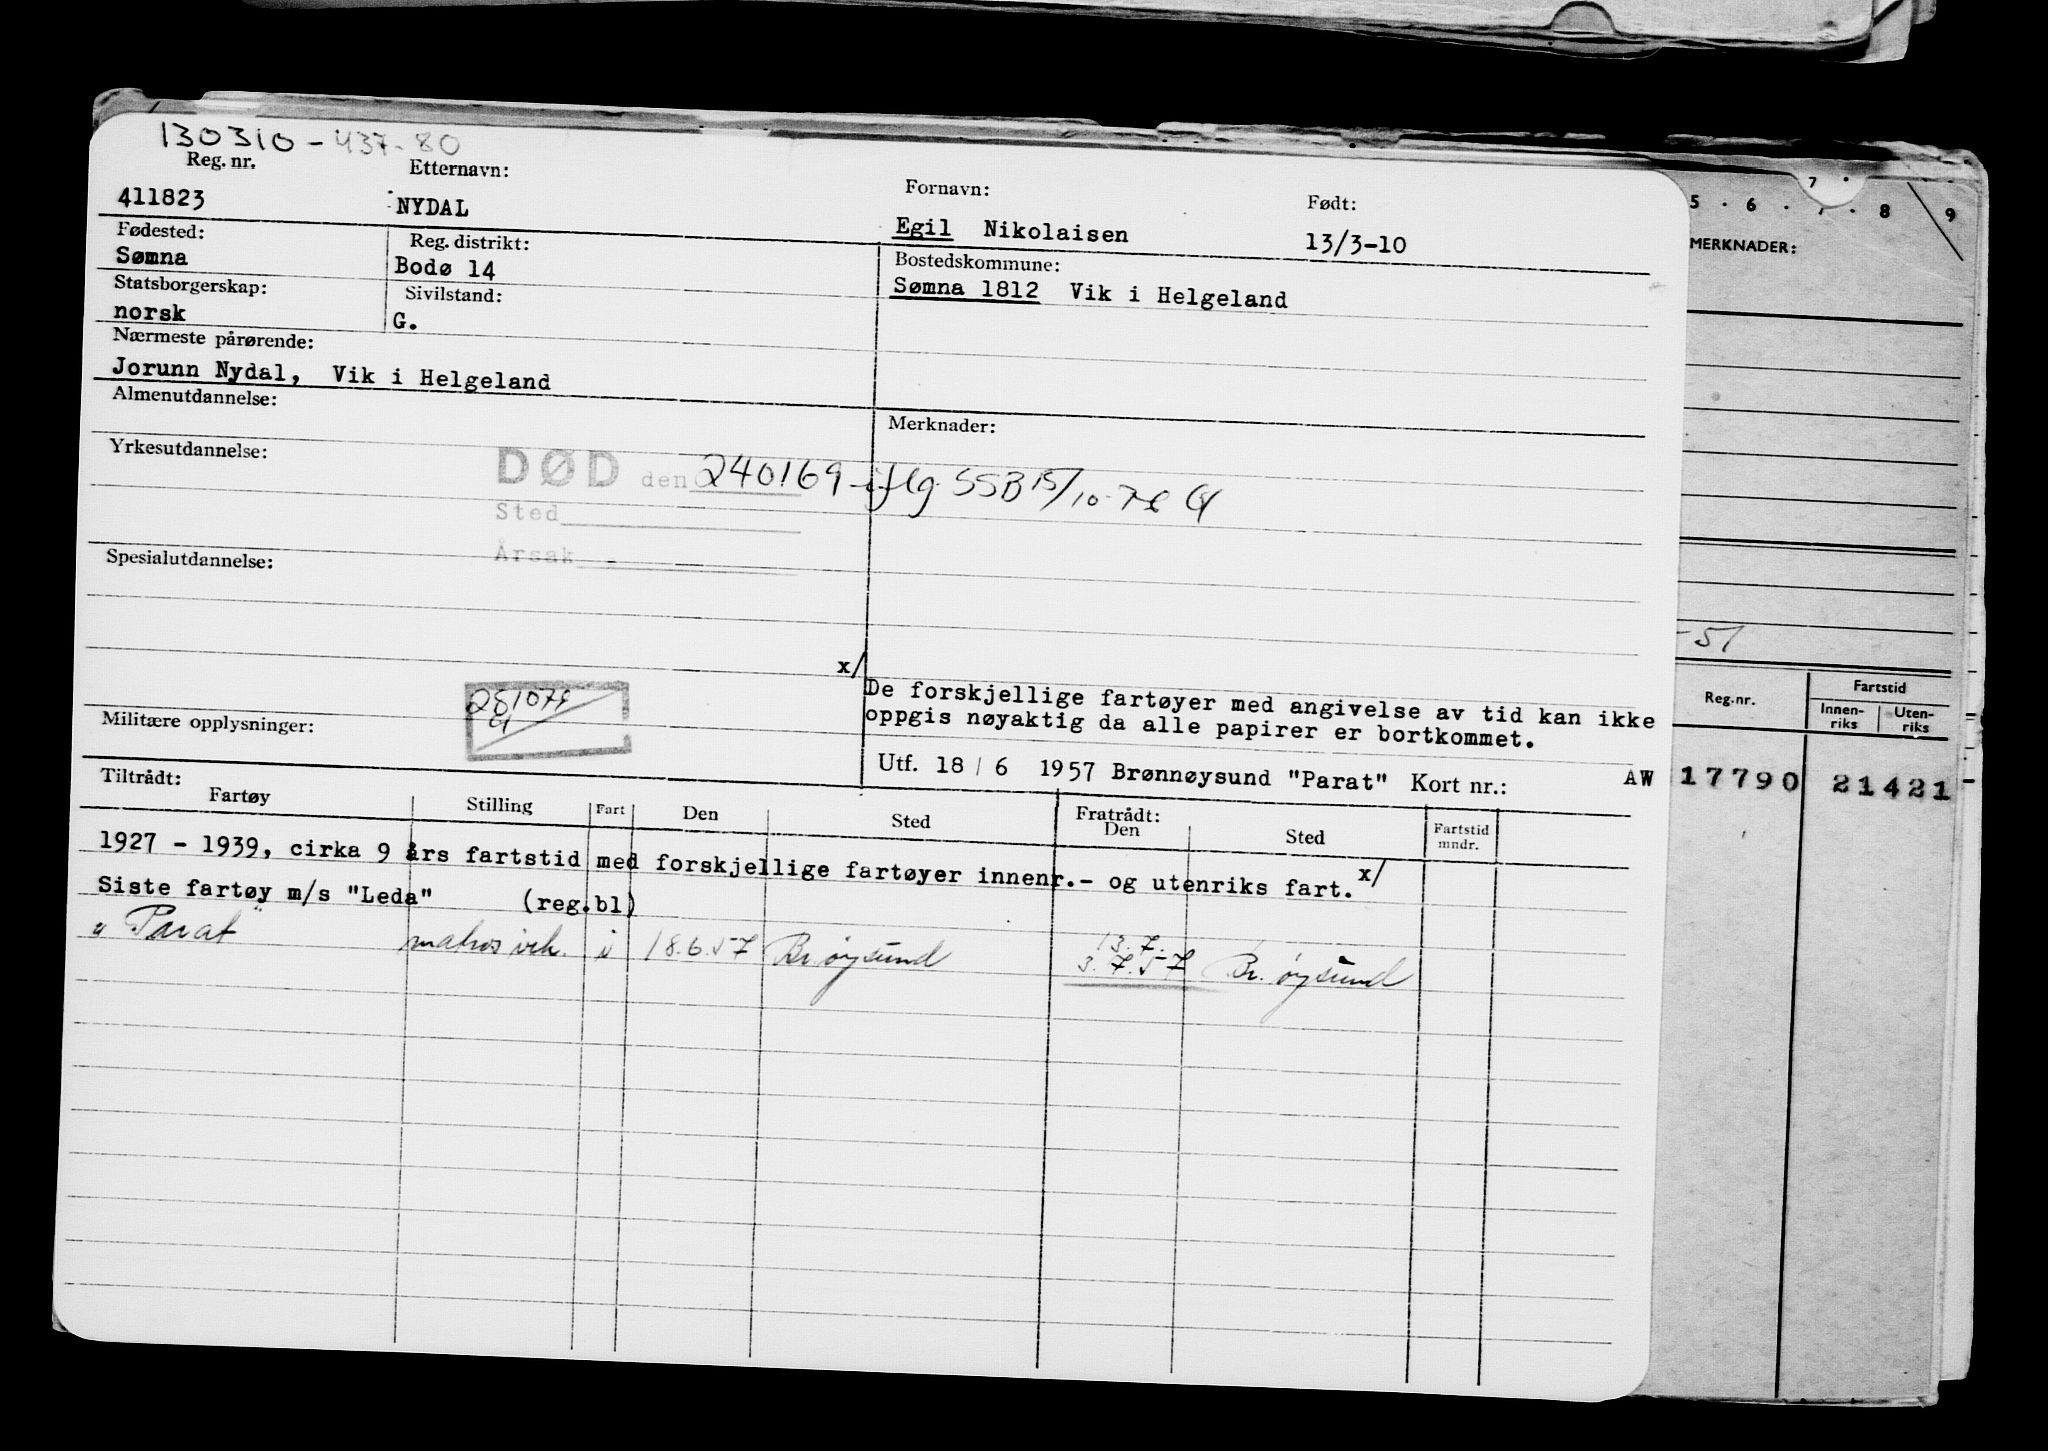 130310-437-80
Reg. nr. Etternavn: Fornavn: Født:
411823 NYDAL Egil Nikolaisen 13/3-10
Fødested: Reg. distrikt: Bostedskommune:
Sømna Bodø 14 Sømna 1812 Vik i Helgeland
Statsborgerskap: Sivilstand:
norsk G.
Nærmeste pårørende:
Jorunn Nydal, Vik i Helgeland
Almenutdannelse: Merknader:
Yrkesutdannelse:
DØD den 240169 iflg SSB 15/10-
Sted
Årsak
Spesialutdannelse:
x/
De forskjellige fartøyer med angivelse av tid kan ikke
oppgis nøyaktig da alle papirer er bortkommet.
Militære opplysninger:
Utf. 18 / 6 1957 Brønnøysund "Parat" Kort nr.: AW
Tiltrådt: Fratrådt:
Fartøy Stilling Fart Den Sted Den Sted Fartstid mndr.
1927 - 1939, cirka 9 års fartstid med forskjellige fartøyer innenr.- og utenriks fart. x/
Siste fartøy m/s "Leda" (reg.bl)
13.7.
"Parat" matros vik. i 18.6.57 Br.øysund 3.7.57 Br.øysund
5 . 6 . 7 . 8 9
7 .
MERKNADER:
-51
Reg.nr. Fartstid
Innen-riks Uten-riks
17790 21421